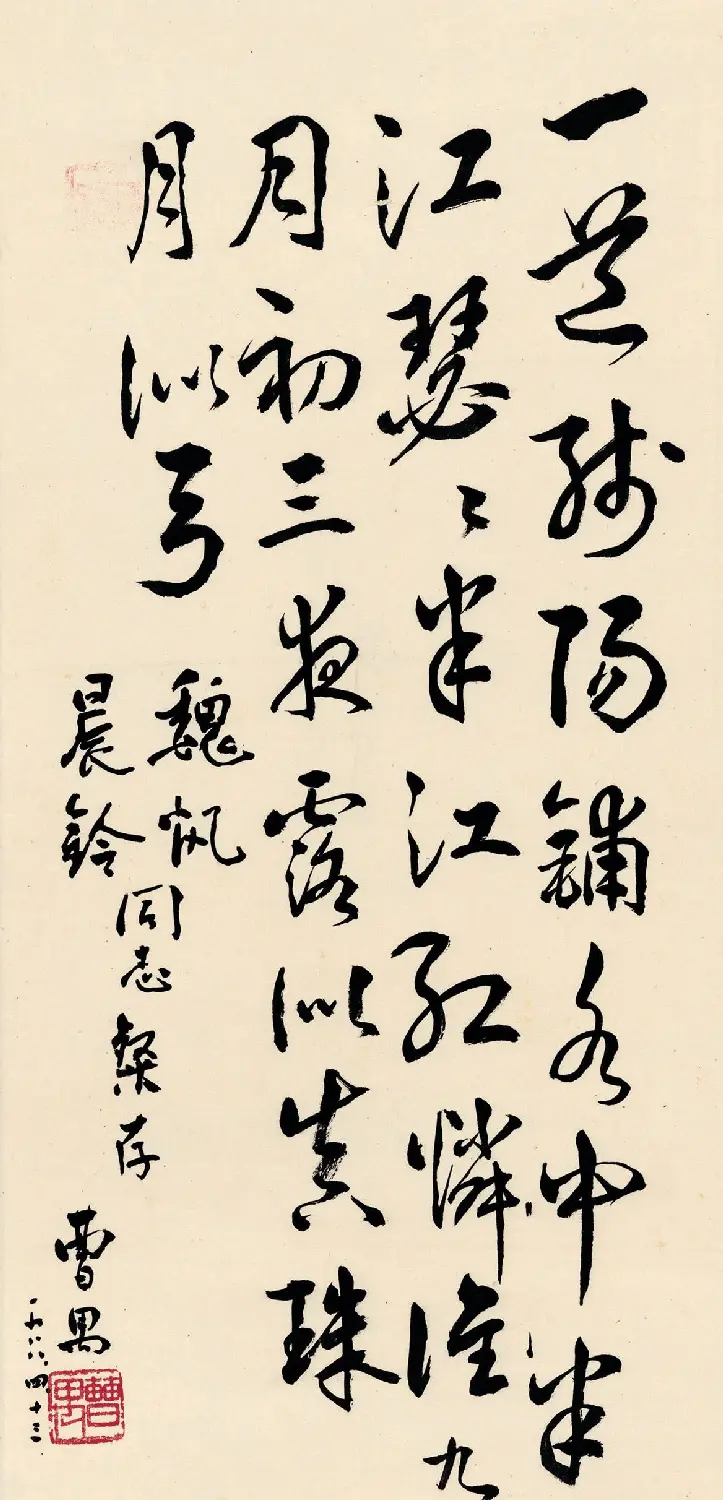 一道残陽鋪水中半
江瑟〻半江紅憐谁九
月初三夜露似真珠
月似弓
魏帆
晨鈴
同志粲存
曹禺
一九八八.四.十三.
曹禺